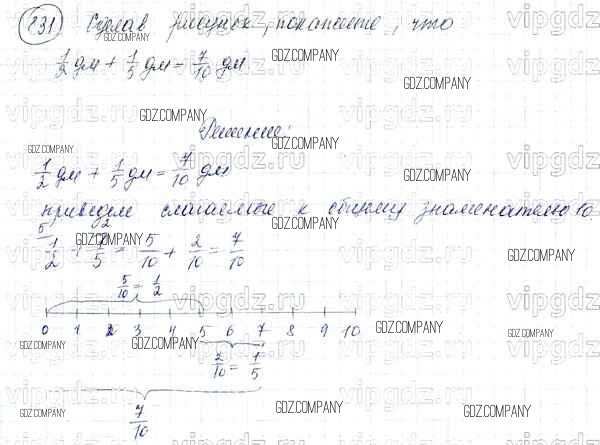 831 Сделав рисунок, покажите, что
1/2 дм + 1/5 дм = 7/10 дм
Решение:
1/2 дм + 1/5 дм = 7/10 дм
приведем слагаемые к общему знаменателю 10.
5 1/2 + 2 1/5 = 5/10 + 2/10 = 7/10
5/10 = 1/2
0 1 2 3 4 5 6 7 8 9 10
2/10 = 1/5
7/10
vipgdz.ru
GDZ.COMPANY